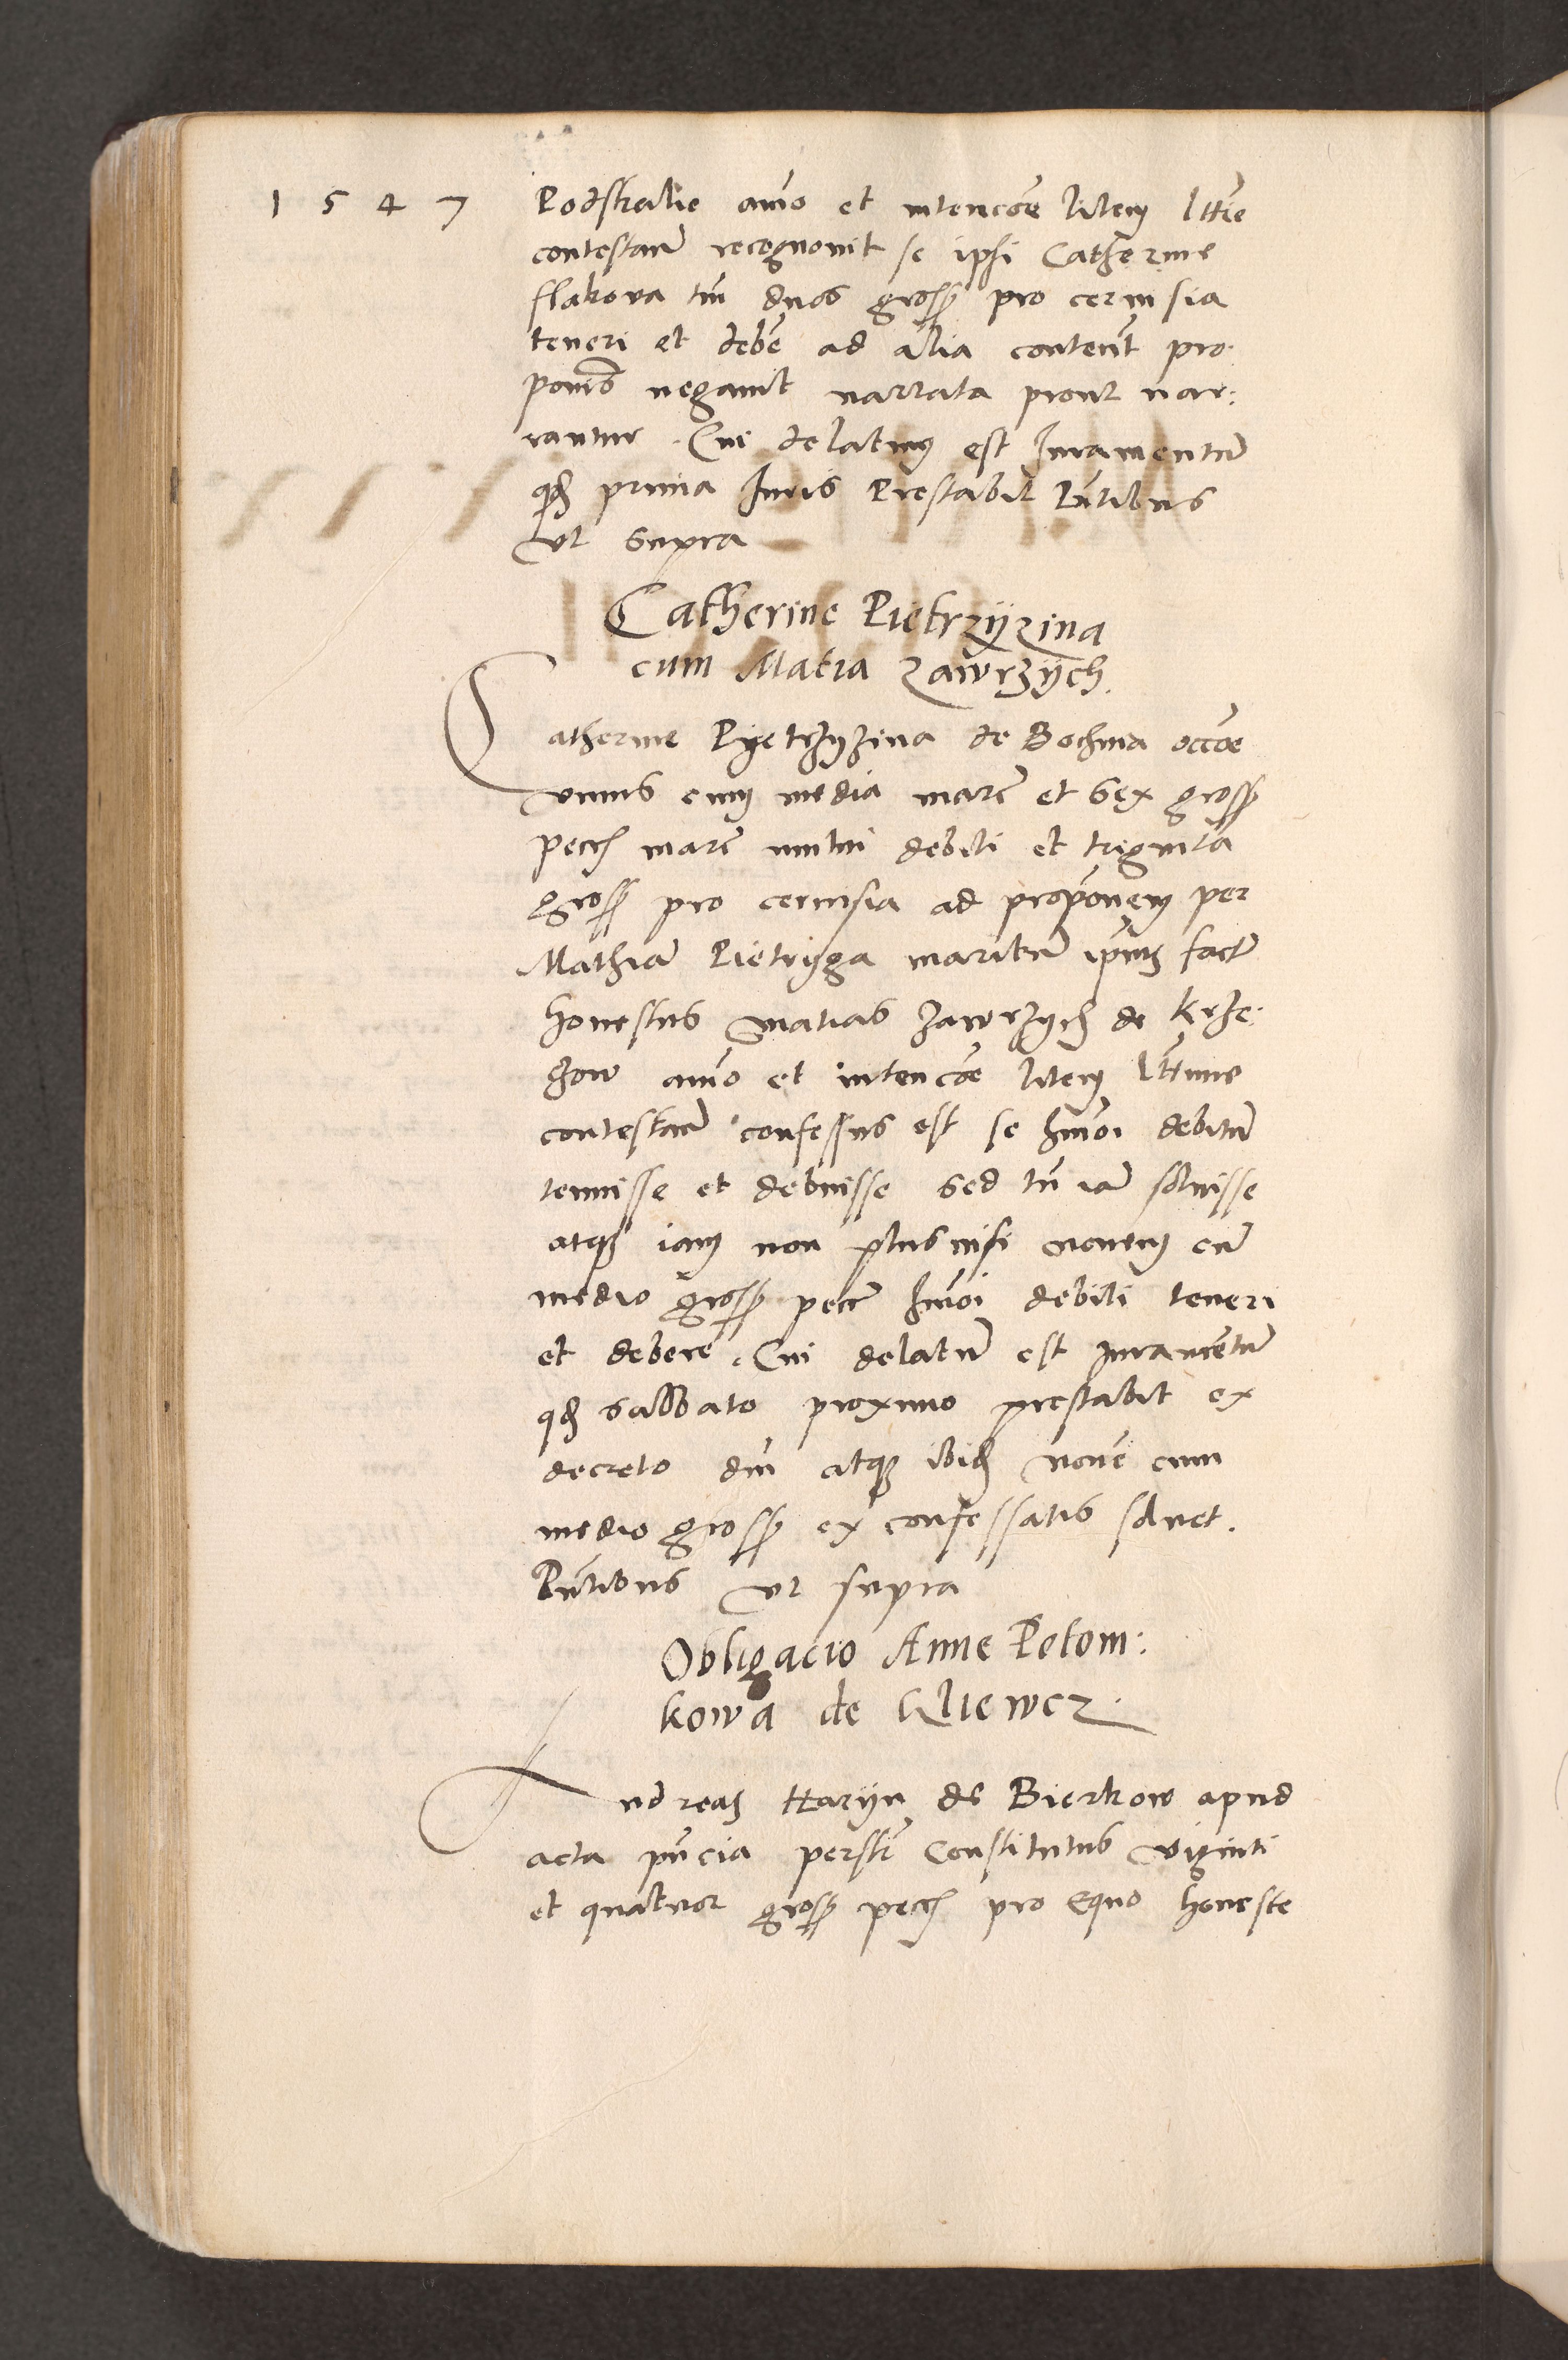 1 5 4 7
Podskalie aīo et intencōe litem lttīe
contestanꝭ recognouit se ipsi Catherine
flakowa tm̄ duos grosß pro ceruisia
teneri et debē ad alia content̄ pro
ponis̄ negauit narrata prout nar:
rantur. Cui delatum est Iuramentum
qd̄ prima Iuris Prestabit Pn̄tibus
vt supra
Catherine Pietrzÿzina
cum Matia Zawrzÿch.
Catherine Pyetrzyzina de Bochnia occōe
vnius cum media marē et sex grosß
pecc̄ marē mutui debiti et triginta
grosß pro ceruisia ad propōnem per
Mathiā Pietrÿga maritū ipius factē
honestus Matias Zawrzych de krze:
zow aīo et intencōe litem lttime
contestanꝭ confessus est se hm̄oi debitū
tenuisse et debuisse sed tn̄ iā soluisse
atqꝫ iam non plus nisi nouem cū
medio grosß pecc̄ hm̄oi debiti teneri
et debere. Cui delatū est Iuramētū
qd̄ sabbato proximo prestabit ex
decreto dn̄i atqꝫ ibid̄ nouē cum
medio grosß ex confessatis soluet.
Pn̄tibus vt supra
Obligacio Anne Potom:
kowa de Kliewcz.
Andreas Harÿn de Bierkow apud
acta pn̄cia persr̄ Constitutus viginti
et quatuor grosß pecc̄ pro Equo honeste